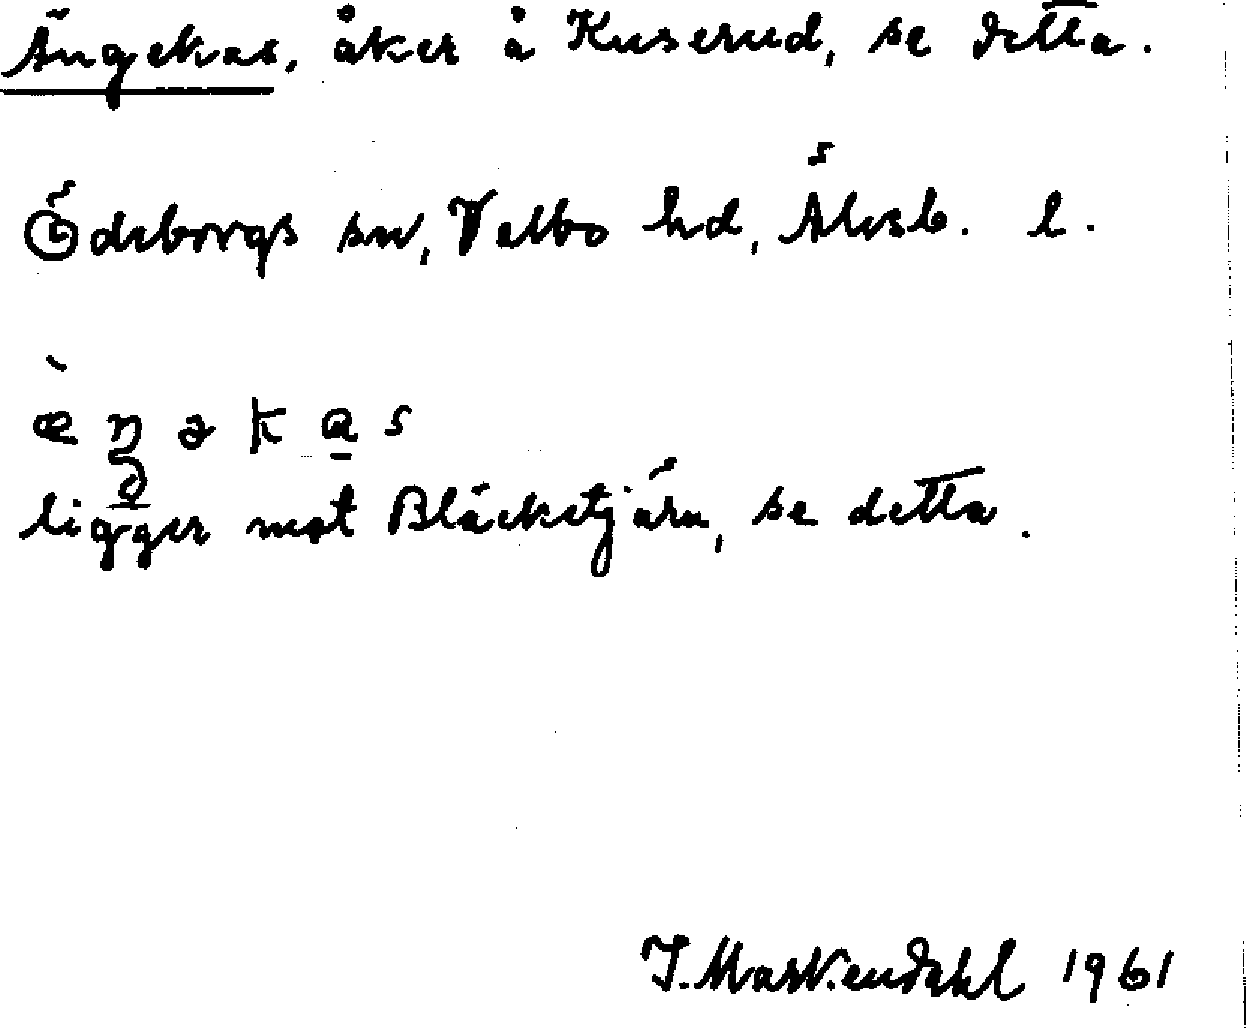 Ängekas, åker å Kuserud, se detta.
Ödeborgs sn, Valbo hd, Älvsb. l.
æ̀ŋəkas
ligger mot Bläckstjärn, se detta.
I. Markendahl 1961